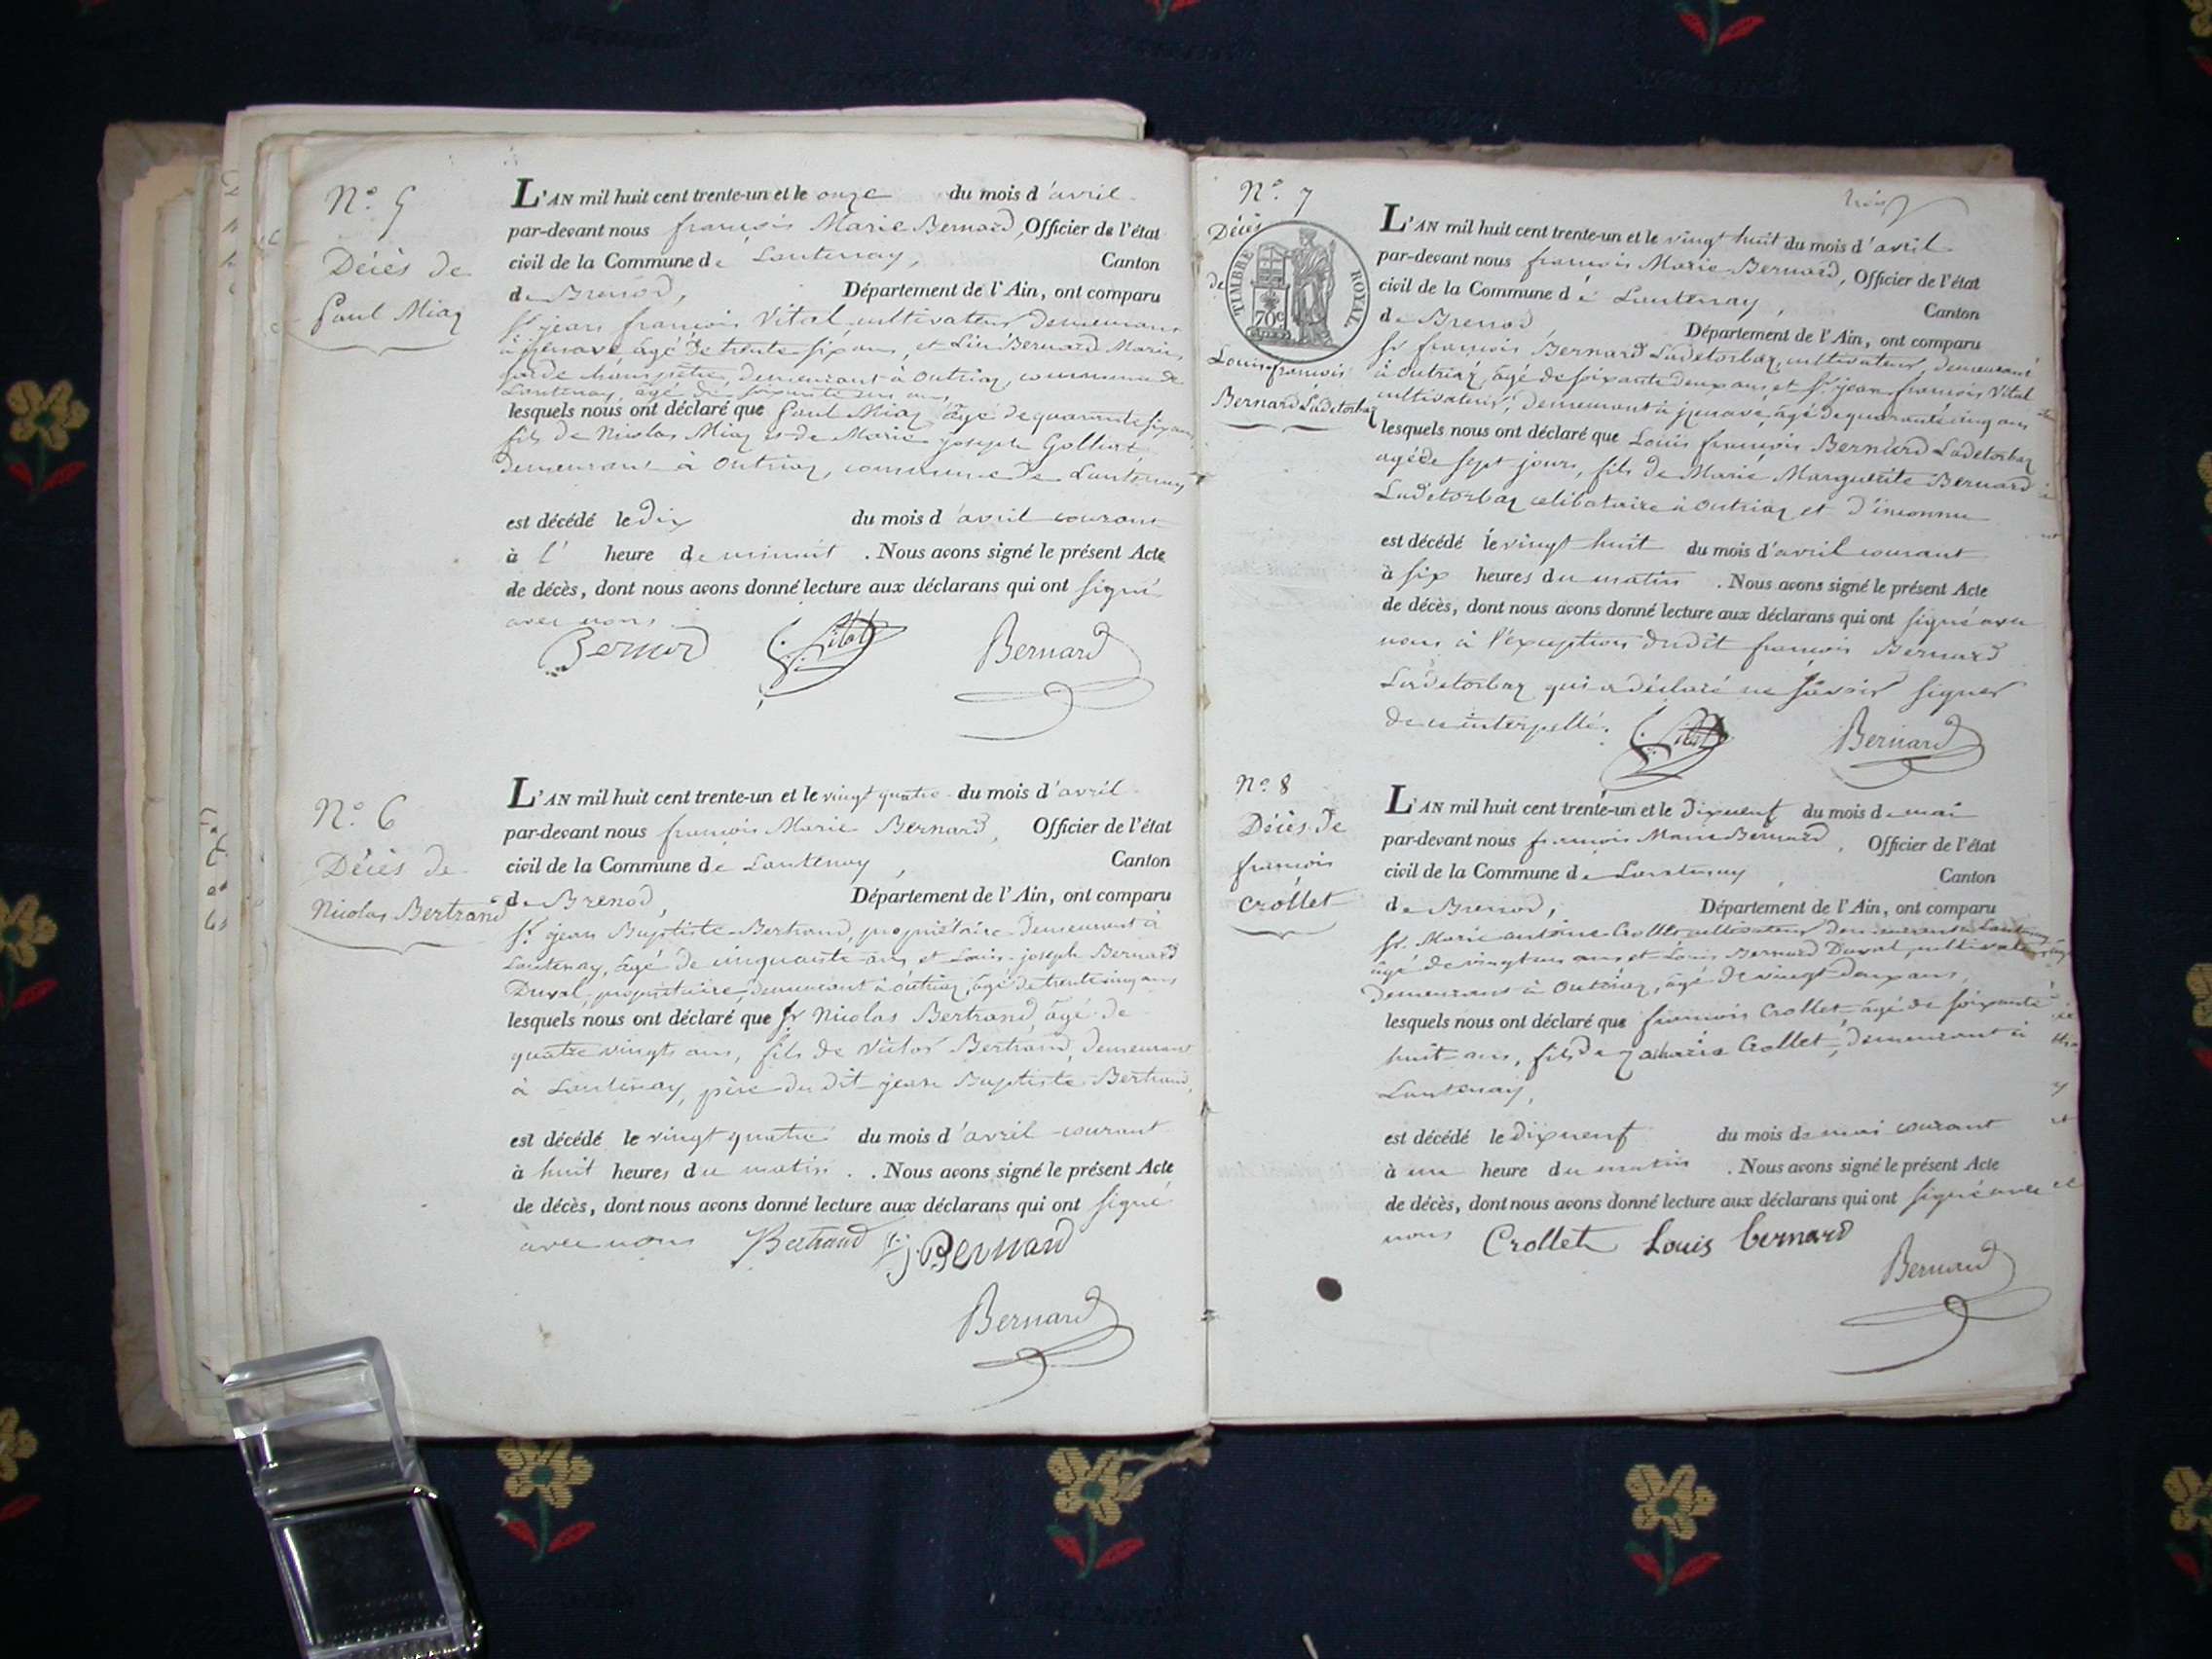 N.° 5
Décès de
Paul Miaz
L'AN mil huit cent trente-un et le onze du mois d'avril
par-devant nous françois Marie Bernard, Officier de l'état
civil de la Commune de Lantenay, Canton
de Brenod, Département de l'Ain, ont comparu
Sr jean françois Vital cultivateur demeurant
à jjenave, âgé de trente six ans, et Bernard Marin
garde champêtre, demeurant à Outriaz, commune de
Lantenay, âgé de soixante un ans,
lesquels nous ont déclaré que Paul Miaz âgé de quarante six ans
fils de Nicolas Miaz et de Marie joseph Golliat
demeurant à Outriaz, commune de Lantenay
est décédé le dix du mois d'avril courant
à l' heure de minuit . Nous avons signé le présent Acte
de décès, dont nous avons donné lecture aux déclarans qui ont signé
avec nous.
Bernard Vital Bernard
N.° 6
Décès de
Nicolas Bertrand
L'AN mil huit cent trente-un et le vingt quatre du mois d'avril
par-devant nous françois Marie Bernard, Officier de l'état
civil de la Commune de Lantenay, Canton
de Brenod, Département de l'Ain, ont comparu
Sr jean Baptiste Bertrand, propriétaire demeurant à
Lantenay, âgé de cinquante ans et Louis joseph Bernard
Duval, propriétaire, demeurant à Outriaz, âgé de trente cinq ans
lesquels nous ont déclaré que Sr Nicolas Bertrand, âgé de
quatre vingts ans, fils de Victor Bertrand, demeurant
à Lantenay, père du dit jean Baptiste Bertrand,
est décédé le vingt quatre du mois d'avril courant
à huit heures du matin . . Nous avons signé le présent Acte
de décès, dont nous avons donné lecture aux déclarans qui ont signé
avec nous Bertrand j. Bernard
Bernard
N.° 7
Décès
de
TIMBRE ROYAL
70c
Louis françois
Bernard Ladetorbaz
L'AN mil huit cent trente-un et le vingt huit du mois d'avril
par-devant nous françois Marie Bernard, Officier de l'état
civil de la Commune de Lantenay, Canton
de Brenod Département de l'Ain, ont comparu
Sr françois Bernard Ladetorbaz, cultivateur, demeurant
à Outriaz, âgé de soixante deux ans, et Sr jean françois Vital
cultivateur, demeurant à jjenave, âgé de quarante cinq ans
lesquels nous ont déclaré que Louis françois Bernard Ladetorbaz
agé de sept jours, fils de Marie Marguerite Bernard
Ladetorbaz célibataire à Outriaz et d'inconnu
est décédé le vingt huit du mois d'avril courant
à six heures du matin . Nous avons signé le présent Acte
de décès, dont nous avons donné lecture aux déclarans qui ont signé avec
nous à l'exception dudit françois Bernard
Ladetorbaz qui a déclaré ne savoir signer
de ce interpellé. Vital Bernard
N.° 8
Décès de
françois
Crollet
L'AN mil huit cent trente-un et le dixneuf du mois de mai
par-devant nous françois Marie Bernard, Officier de l'état
civil de la Commune de Lantenay, Canton
de Brenod, Département de l'Ain, ont comparu
Sr. Marie antoine Crollet cultivateur demeurant à Lantenay,
âgé de vingt un ans et Louis Bernard Duval, cultivateur,
demeurant à Outriaz, âgé de vingt deux ans,
lesquels nous ont déclaré que françois Crollet âgé de soixante
huit ans, fils de zacharie Crollet, demeurant à
Lantenay,
est décédé le dixneuf du mois de mai courant
à une heure du matin . Nous avons signé le présent Acte
de décès, dont nous avons donné lecture aux déclarans qui ont signé avec
nous Crollet Louis bernard
Bernard